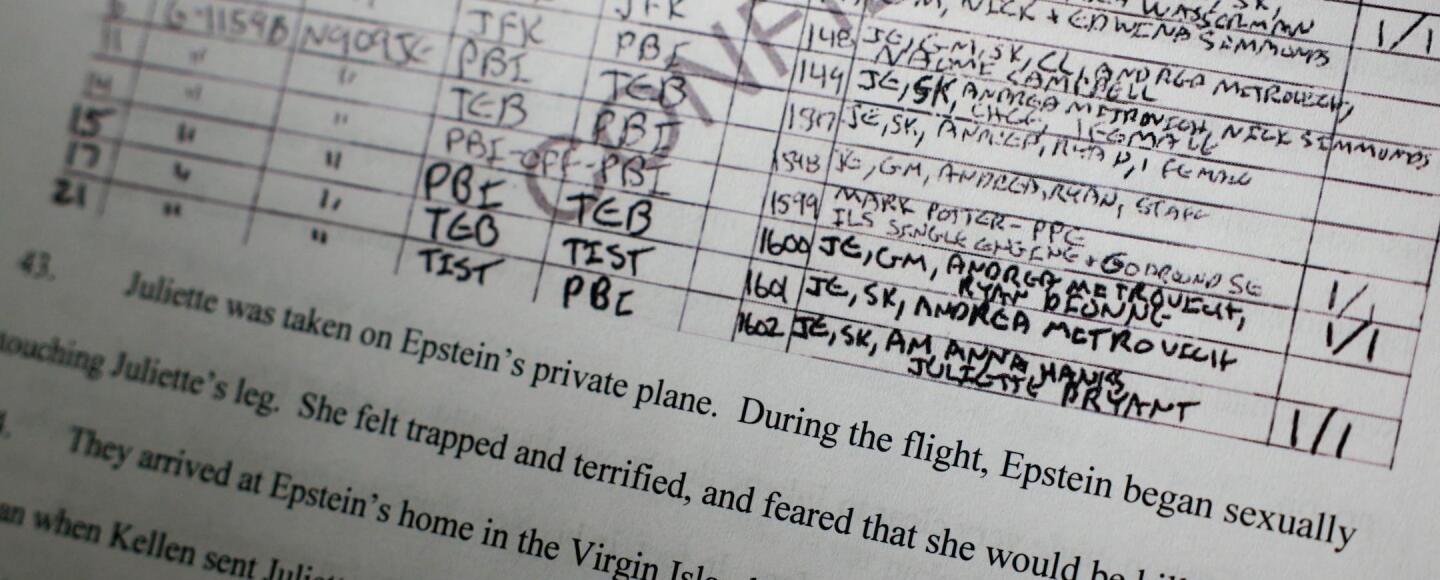 WASSERMAN
NICK + EDWENA SIMMONDS 1/1
G-1159B N909JE JFK JFK 148 JE, GM, SK, CL, ANDREA METROVICH,
NAOME CAMPBELL
11 " " PBI PBI 149 JE, SK, ANDREA METROVICH, NICK SIMMONDS
14 " " TEB TEB JE, SK, ANDREA, 1 FEMALE
15 " " PBI-OFF-PBI 1598 JE, GM, ANDREA, RYAN, STAFF
17 " " PBI TEB 1599 MARK POTTER- PPC
ILS SINGLE ENGINE +
21 " " TEB TIST 1600 JE, GM, ANDREA METROVICH, 1/1
RYAN DIONNE
TIST PBI 1601 JE, SK, ANDREA METROVICH 1/1
1602 JE, SK, AM, ANNA
JULIETTE BRYANT 1/1
43. Juliette was taken on Epstein's private plane. During the flight, Epstein began sexually
touching Juliette's leg. She felt trapped and terrified, and feared that she would be
They arrived at Epstein's home in the Virgin
when Kellen sent